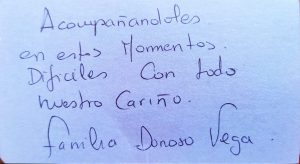 Acompañandoles
en estos Mommentos.
Dificiles Con todo
nuestro Cariño.
familia Donoso Vega.